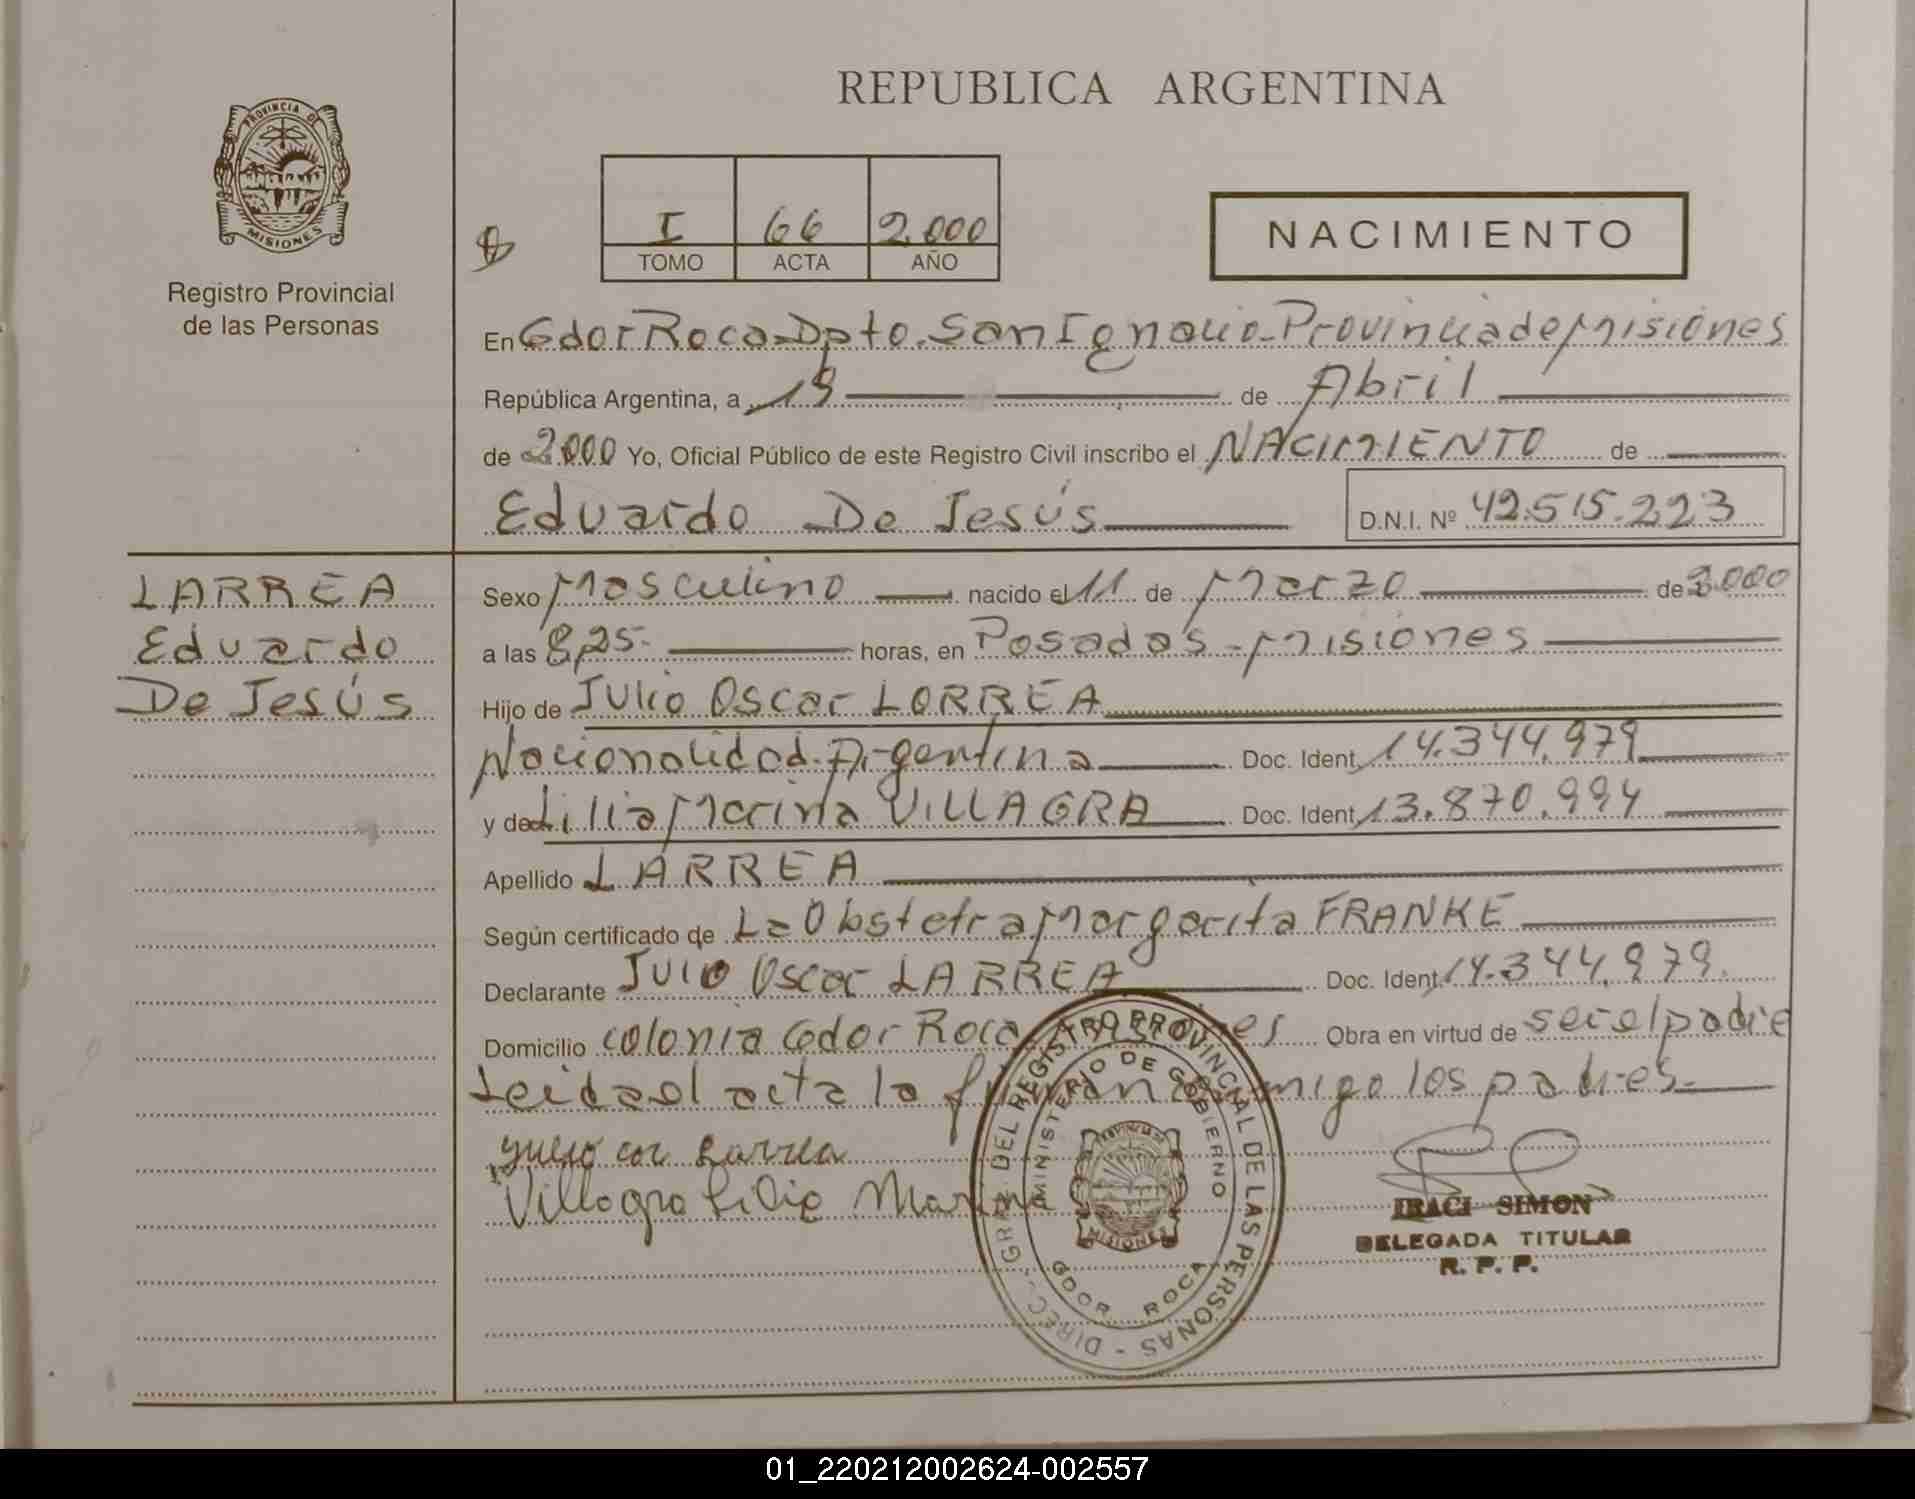 REPUBLICA ARGENTINA
PROVINCIA DE
MISIONES
Registro Provincial
de las Personas
I 66 2.000
TOMO ACTA AÑO
NACIMIENTO
En Gdor Roca Dpto. San Ignacio - Provincia de Misiones
República Argentina, a 19 de Abril
de 2.000 Yo, Oficial Público de este Registro Civil inscribo el NACIMIENTO de
Eduardo De Jesús D.N.I. Nº 42.515.223
LARREA
Eduardo
De Jesús
Sexo Masculino nacido el 11 de Marzo de 2.000
a las 8,25- horas, en Posadas - Misiones
Hijo de Julio Oscar LORREA
Nacionalidad Argentina Doc. Ident. 14.344.979
y de Lilia Marina VILLAGRA Doc. Ident. 13.870.994
Apellido LARREA
Según certificado de La Obstetra Margarita FRANKE
Declarante Julio Oscar LARREA Doc. Ident. 14.344.979.
Domicilio Colonia Gdor Roca Misiones Obra en virtud de ser el padre
Leida el acta la firman conmigo los padres.
Larrea
Villagra Lilia Marina
DIREC. GRAL. DEL REGISTRO PROVINCIAL DE LAS PERSONAS -
MINISTERIO DE GOBIERNO
PROVINCIA DE
MISIONES
GDOR. ROCA
IRACI SIMON
DELEGADA TITULAR
R. P. P.
01_220212002624-002557